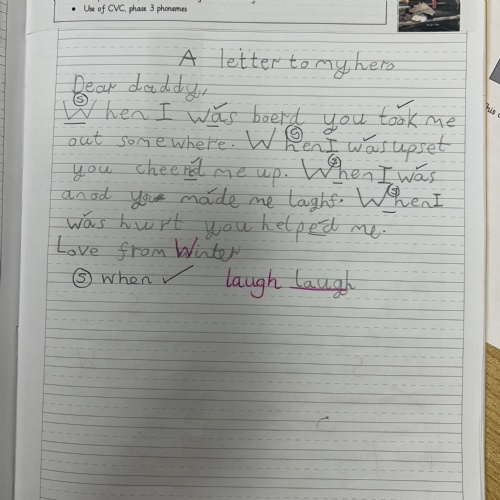 Use of CVC, phase 3 phonemes
A letter to my hero
Dear daddy,
When I was boerd you took me
out somewhere. When I was upset
you cheered me up. When I was
anod you made me laghf. When I
was hurt you helped me.
Love from Winter
when laugh laugh